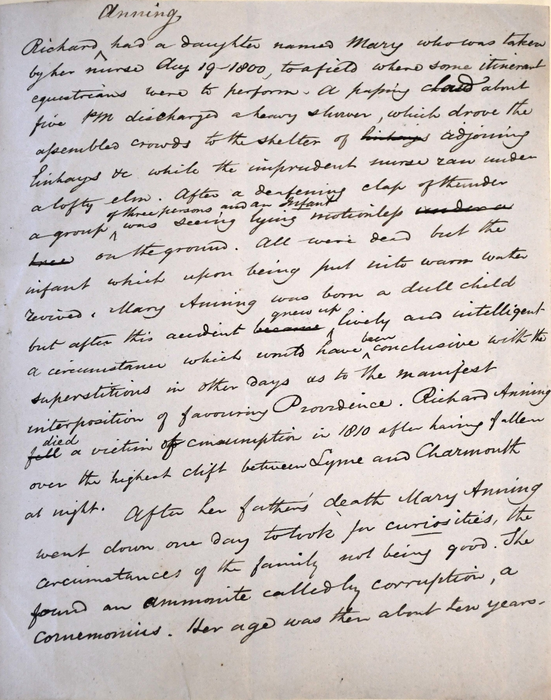 Anning
Richard ^ had a daughter named Mary who was taken
by her nurse Aug 19-1800, to a field where some itinerant
equestrians were to perform. A passing cloud about
five PM discharged a heavy shower, which drove the
assembled crowds to the shelter of linhays adjoining
linhays &c while the imprudent nurse ran under
a lofty elm. After a deafening clap of thunder
of three persons and an Infant
a group ^ was seeing lying motionless under a
tree on the ground. All were dead but the
infant which upon being put into warm water
revived. Mary Anning was born a dull child
grew up
but after this accident became ^ lively and intelligent
been
a circumstance which would have ^ conclusive with the
superstitious in other days as to the manifest
interposition of favouring Providence. Richard Anning
died
fell a victim of consumption in 1810 after having fallen
over the highest clift between Lyme and Charmouth
at night. After her father's death Mary Anning
went down one day to look for curiosities, the
circumstances of the family not being good. She
found an ammonite called by corruption, a
cornemonius. Her age was then about ten years.